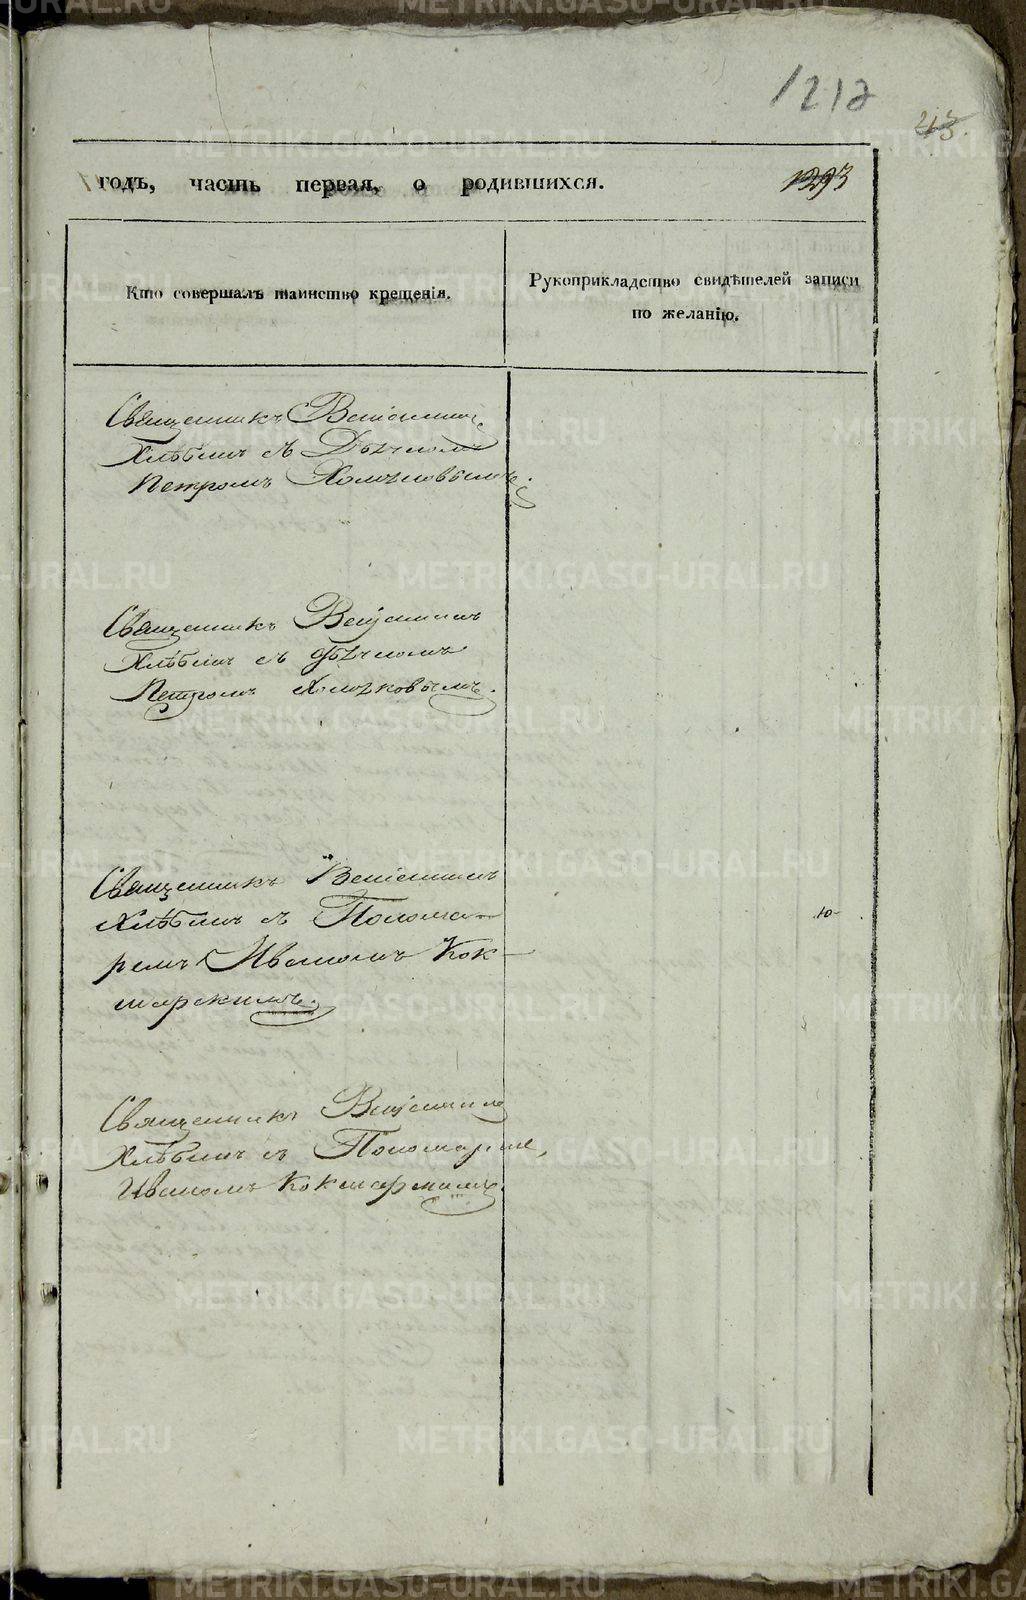 1212
43.
годъ, часть первая, о родившихся.
1293
Кто совершалъ таинство крещенія.
Рукоприкладство свидѣтелей записи
по желанію.
Священникъ Веніаминъ
Хлѣбинъ съ Дьячкомъ
Петромъ
Священникъ Веніаминъ
Хлѣбинъ съ дьячкомъ
Петромъ
Священникъ Веніаминъ
Хлѣбинъ съ Понома-
ремъ Иваномъ Кок-
шарскимъ.
Священникъ Веніаминъ
Хлѣбинъ съ Пономаремъ
Иваномъ Кокшарскимъ.
METRIKI.GASO-URAL.RU